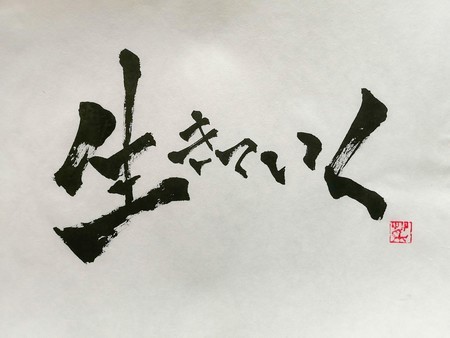 生きていく